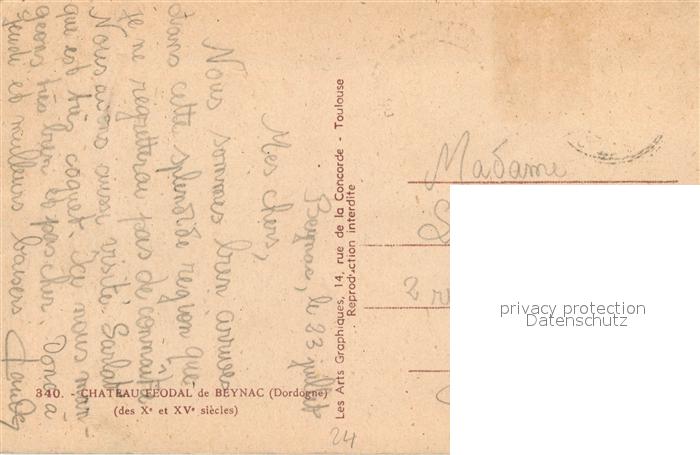 Beynac, le 23 juillet
Mes chers,
Nous sommes bien arrivées
dans cette splendide region que
je ne regretterai pas de connaître
Nous avons aussi visité Sarlat
que est très coquet. Ici nous man-
geons très bien et pas cher. Donc à
jeudi et meilleurs baisers
340. - CHATEAU FEODAL de BEYNAC (Dordogne)
(des Xe et XVe siècles)
Les Arts Graphiques, 14, rue de la Concorde - Toulouse
Reproduction interdite
24
Madame
privacy protection
Datenschutz